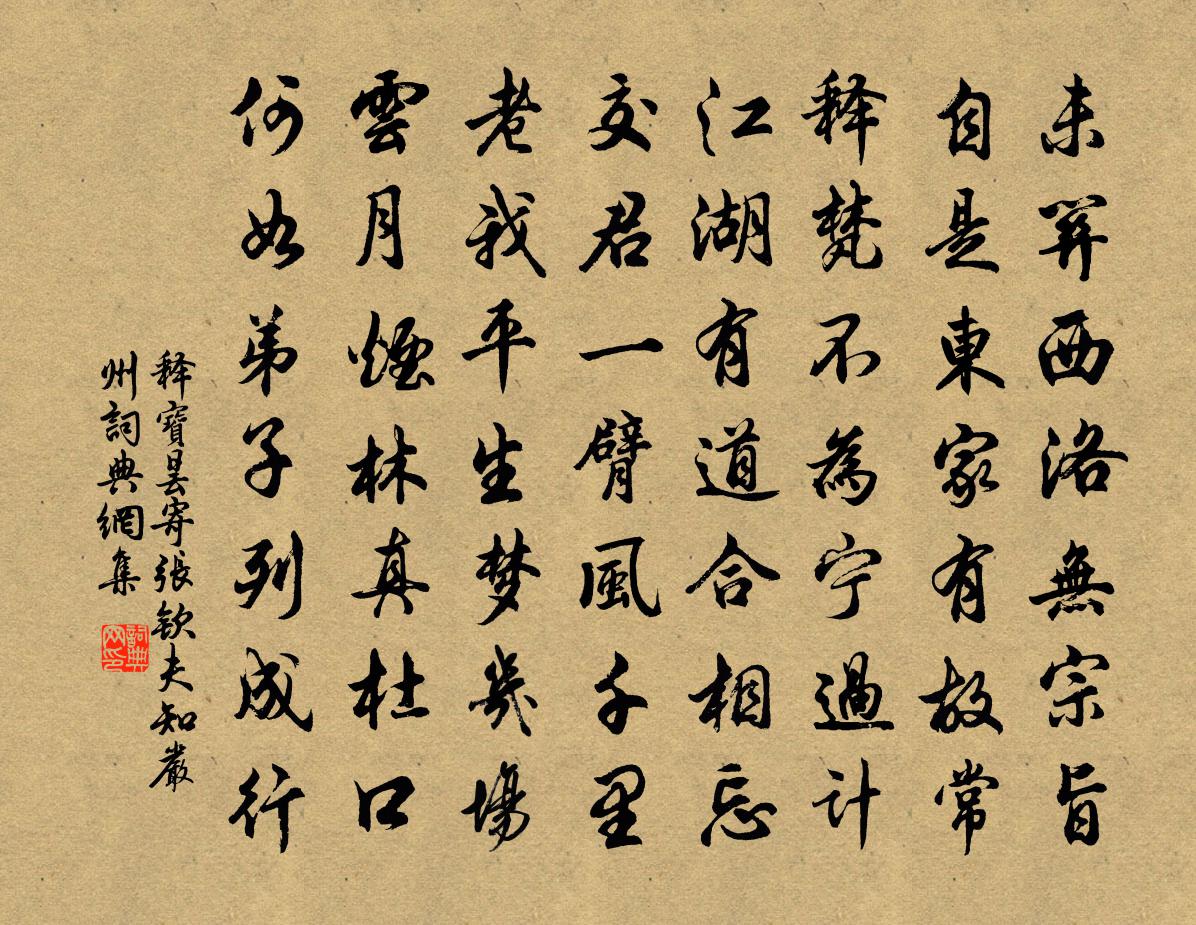 未開西洛無宗旨
自是東家有故常
释梵不為宁過計
江湖有道合相忘
交君一臂風千里
老我平生梦幾場
雲月煙林真杜口
何如弟子列成行
释寶曇寄張欽夫知嚴
州詞典網集
詞典
网印